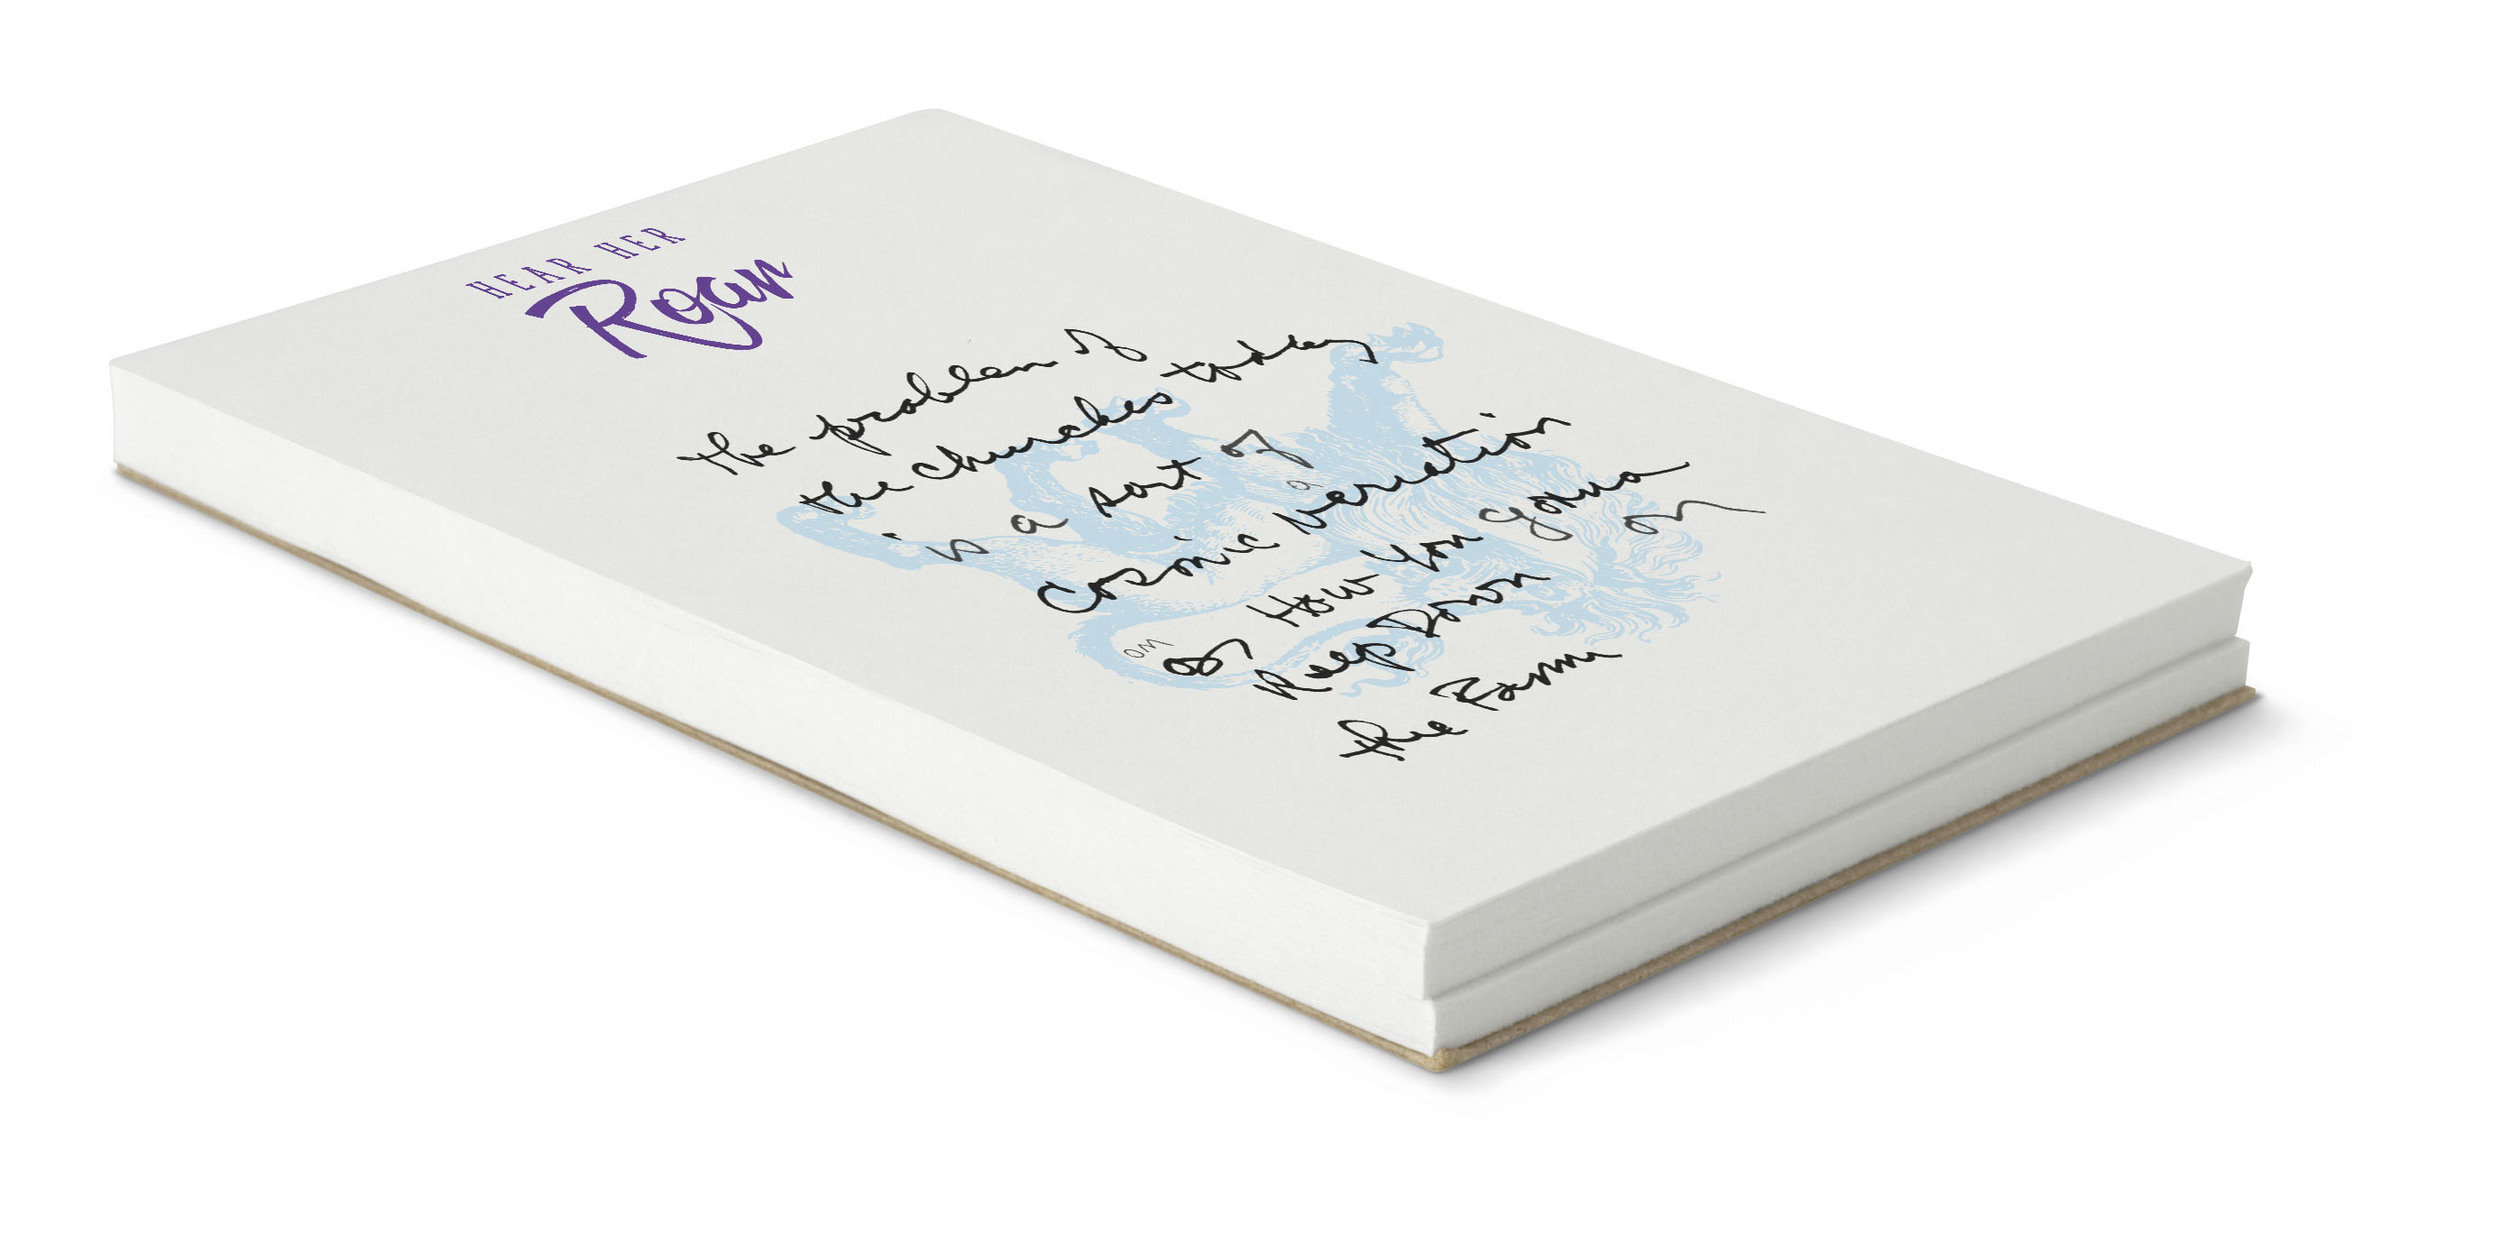 HEAR HER
Roar
the problem of
the churches today
is a sort of
a
Cosmic veriation
on
How You gonna
Keep Down on
the Farm